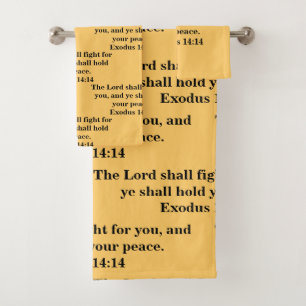 you, and ye shall
your peace.
Exodus 14:14
The Lord sha
ye shall hold y
Exodus 1
ll fight for
shall hold
peace.
14:14
The Lord shall
you, and ye shall
your peace
Exodus 14:14
ll fight for
shall hold
peace.
14:14
you, and
your peace.
14:14
The Lord shall fig
ye shall hold y
Exodus 1
ght for you, and
your peace.
14:14